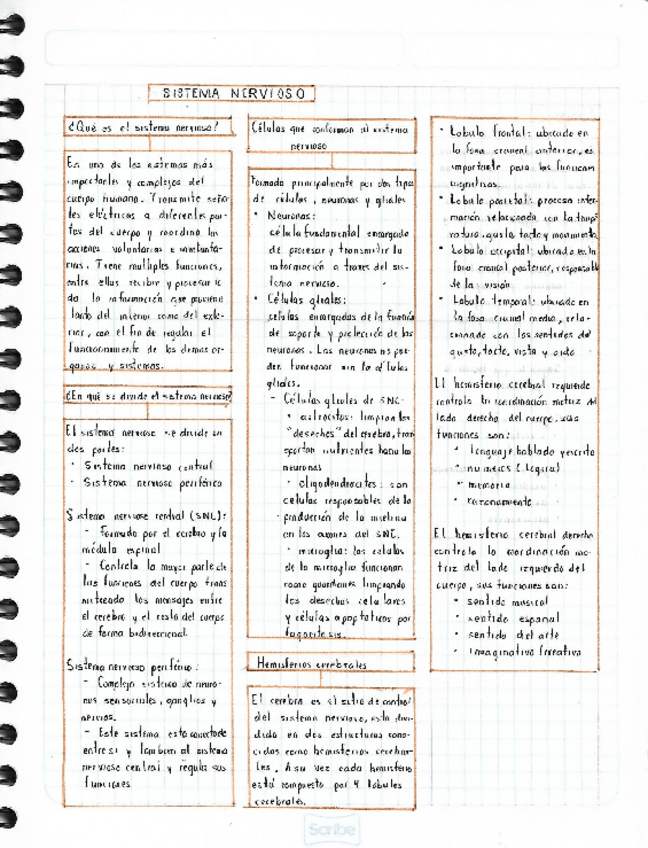 SISTEMA NERVIOSO
¿Qué es el sistema nervioso?
Es uno de los sistemas más
importantes y complejos del
cuerpo humano. Transmite seña
les eléctricas a diferentes par-
tes del cuerpo y coordina las
acciones voluntarias e involunta-
rias. Tiene multiples funciones,
entre ellas recibir y procesar to
da la información que proviene
tanto del interior como del exte-
rior, con el fin de regular el
funcionamiento de los demas or-
ganos y sistemas.
¿En qué se divide el sistema nervioso?
El sistema nervioso se divide en
dos partes:
• Sistema nervioso central
• Sistema nervioso periférico
Sistema nervioso central (SNC):
- Formado por el cerebro y la
médula espinal
- Controla la mayor parte de
las funciones del cuerpo trans
mitiendo los mensajes entre
el cerebro y el resto del cuerpo
de forma bidireccional.
Sistema nervioso periférico:
- Complejo sistema de neuro-
nas sensoriales, ganglios y
nervios.
- Este sistema esta conectado
entre si y tambien al sistema
nervioso central y regula sus
funciones
Células que conforman al sistema
nervioso
Formado principalmente por dos tipos
de células, neuronas y gliales
• Neuronas:
célula fundamental encargada
de procesar y transmitir la
información a traves del sis-
tema nervioso.
• Células gliales:
celulas encargadas de la función
de soporte y protección de las
neuronas. Las neuronas no pue-
den funcionar sin la células
gliales.
- Células gliales de SNC
• astrocitos: limpian los
"desechos" del cerebro, tran
sportan nutrientes hacia las
neuronas
• oligodendrocitos: son
celulas responsables de la
producción de la mielina
en los axones del SNC.
• microglia: las celulas
de la microglia funcionan
como guardianes limpiando
los desechos celulares
y células apoptoticas por
fagocitosis.
Hemisferios cerebrales
El cerebro es el sitio de control
del sistema nervioso, esta divi
dido en dos estructuras cono-
cidas como hemisferios cerebra-
les. A su vez cada hemisferio
está compuesto por 4 lobulos
cerebrales.
• Lobulo frontal: ubicado en
la fosa craneal anterior, es
importante para las funciones
cognitivas.
• Lobulo parietal: procesa infor-
mación relacionada con la tempe
ratura, gusto, tacto y movimiento
• Lobulo occipital: ubicado en la
fosa craneal posterior, responsable
de la visión
• Lobulo temporal: ubicado en
la fosa craneal media, rela-
cionado con los sentidos del
gusto, tacto, vista y oido
El hemisferio cerebral izquierdo
controla la coordinación motriz del
lado derecho del cuerpo, sus
funciones son:
• lenguaje hablado y escrito
• numeros (logica)
• memoria
• razonamiento
El hemisferio cerebral derecho
controla la coordinación mo-
triz del lado izquierdo del
cuerpo, sus funciones son:
• sentido musical
• sentido espacial
• sentido del arte
• imaginativo/creativo
Scribe